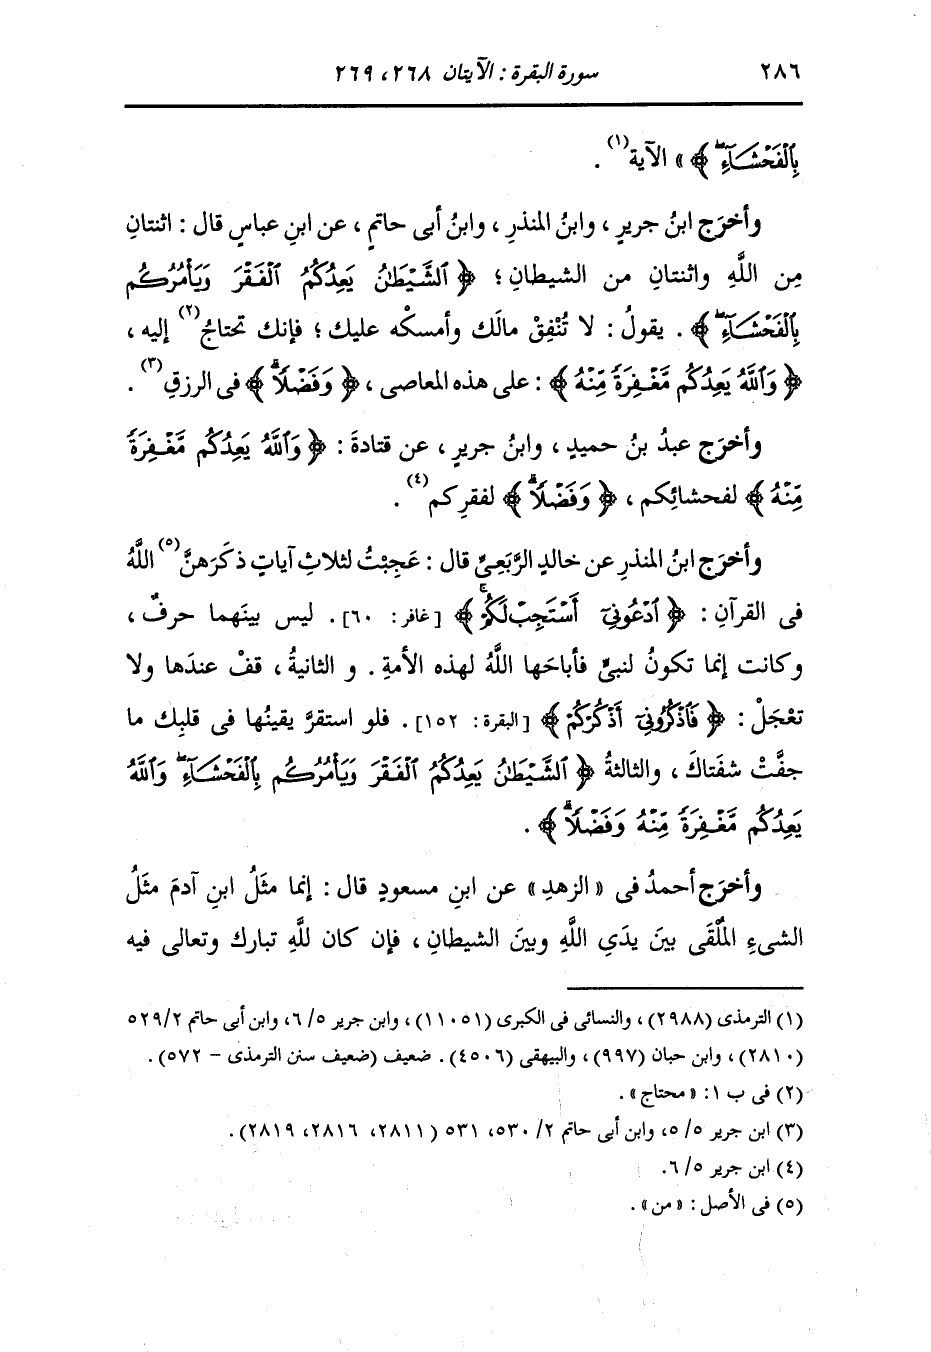 ٢٨٦
سورة البقرة : الآيتان ٢٦٨، ٢٦٩
بِٱلۡفَحۡشَآءِۖ ﴾ » الآية(١) .
وأخرَج ابنُ جريرٍ ، وابنُ المنذرِ ، وابنُ أبى حاتمٍ ، عن ابنِ عباسٍ قال : اثنتانِ
مِن اللَّهِ واثنتانِ من الشيطانِ ؛ ﴿ ٱلشَّيۡطَٰنُ يَعِدُكُمُ ٱلۡفَقۡرَ وَيَأۡمُرُكُم
بِٱلۡفَحۡشَآءِۖ ﴾ . يقولُ : لا تُنْفِقْ مالَك وأمسكْه عليك ؛ فإنك تحتاجُ(٢) إليه ،
﴿ وَٱللَّهُ يَعِدُكُم مَّغۡفِرَةٗ مِّنۡهُ ﴾ : على هذه المعاصى ، ﴿ وَفَضۡلٗاۗ ﴾ فى الرزقِ(٣) .
وأخرَج عبدُ بنُ حميدٍ ، وابنُ جريرٍ ، عن قتادةَ : ﴿ وَٱللَّهُ يَعِدُكُم مَّغۡفِرَةٗ
مِّنۡهُ ﴾ لفحشائِكم ، ﴿ وَفَضۡلٗاۗ ﴾ لفقرِكم(٤) .
وأخرَج ابنُ المنذرِ عن خالدٍ الرَّبَعِىِّ قال : عَجِبْتُ لثلاثِ آياتٍ ذكَرَهنَّ(٥) اللَّهُ
فى القرآنِ : ﴿ ٱدۡعُونِيٓ أَسۡتَجِبۡ لَكُمۡۚ ﴾ [غافر: ٦٠] . ليس بينَهما حرفٌ ،
وكانت إنما تكونُ لنبىٍّ فأباحَها اللَّهُ لهذه الأمةِ . و الثانيةُ ، قفْ عندَها ولا
تعْجَلْ : ﴿ فَٱذۡكُرُونِيٓ أَذۡكُرۡكُمۡ ﴾ [البقرة: ١٥٢] . فلو استقرَّ يقينُها فى قلبِك ما
جفَّتْ شفَتاكَ ، والثالثةُ ﴿ ٱلشَّيۡطَٰنُ يَعِدُكُمُ ٱلۡفَقۡرَ وَيَأۡمُرُكُم بِٱلۡفَحۡشَآءِۖ وَٱللَّهُ
يَعِدُكُم مَّغۡفِرَةٗ مِّنۡهُ وَفَضۡلٗاۗ ﴾ .
وأخرَج أحمدُ فى « الزهدِ » عن ابنِ مسعودٍ قال : إنما مثَلُ ابنِ آدمَ مثَلُ
الشىءِ المُلْقَى بينَ يدَىِ اللَّهِ وبينَ الشيطانِ ، فإن كان للَّهِ تبارك وتعالى فيه
(١) الترمذى (٢٩٨٨) ، والنسائى فى الكبرى (١١٠٥١) ، وابن جرير ٥/ ٦، وابن أبى حاتم ٥٢٩/٢
(٢٨١٠) ، وابن حبان (٩٩٧) ، والبيهقى (٤٥٠٦) . ضعيف (ضعيف سنن الترمذى - ٥٧٢) .
(٢) فى ب ١: « محتاج » .
(٣) ابن جرير ٥/ ٥، وابن أبى حاتم ٢/ ٥٣٠، ٥٣١ (٢٨١١، ٢٨١٦، ٢٨١٩) .
(٤) ابن جرير ٥/ ٦.
(٥) فى الأصل : « من » .